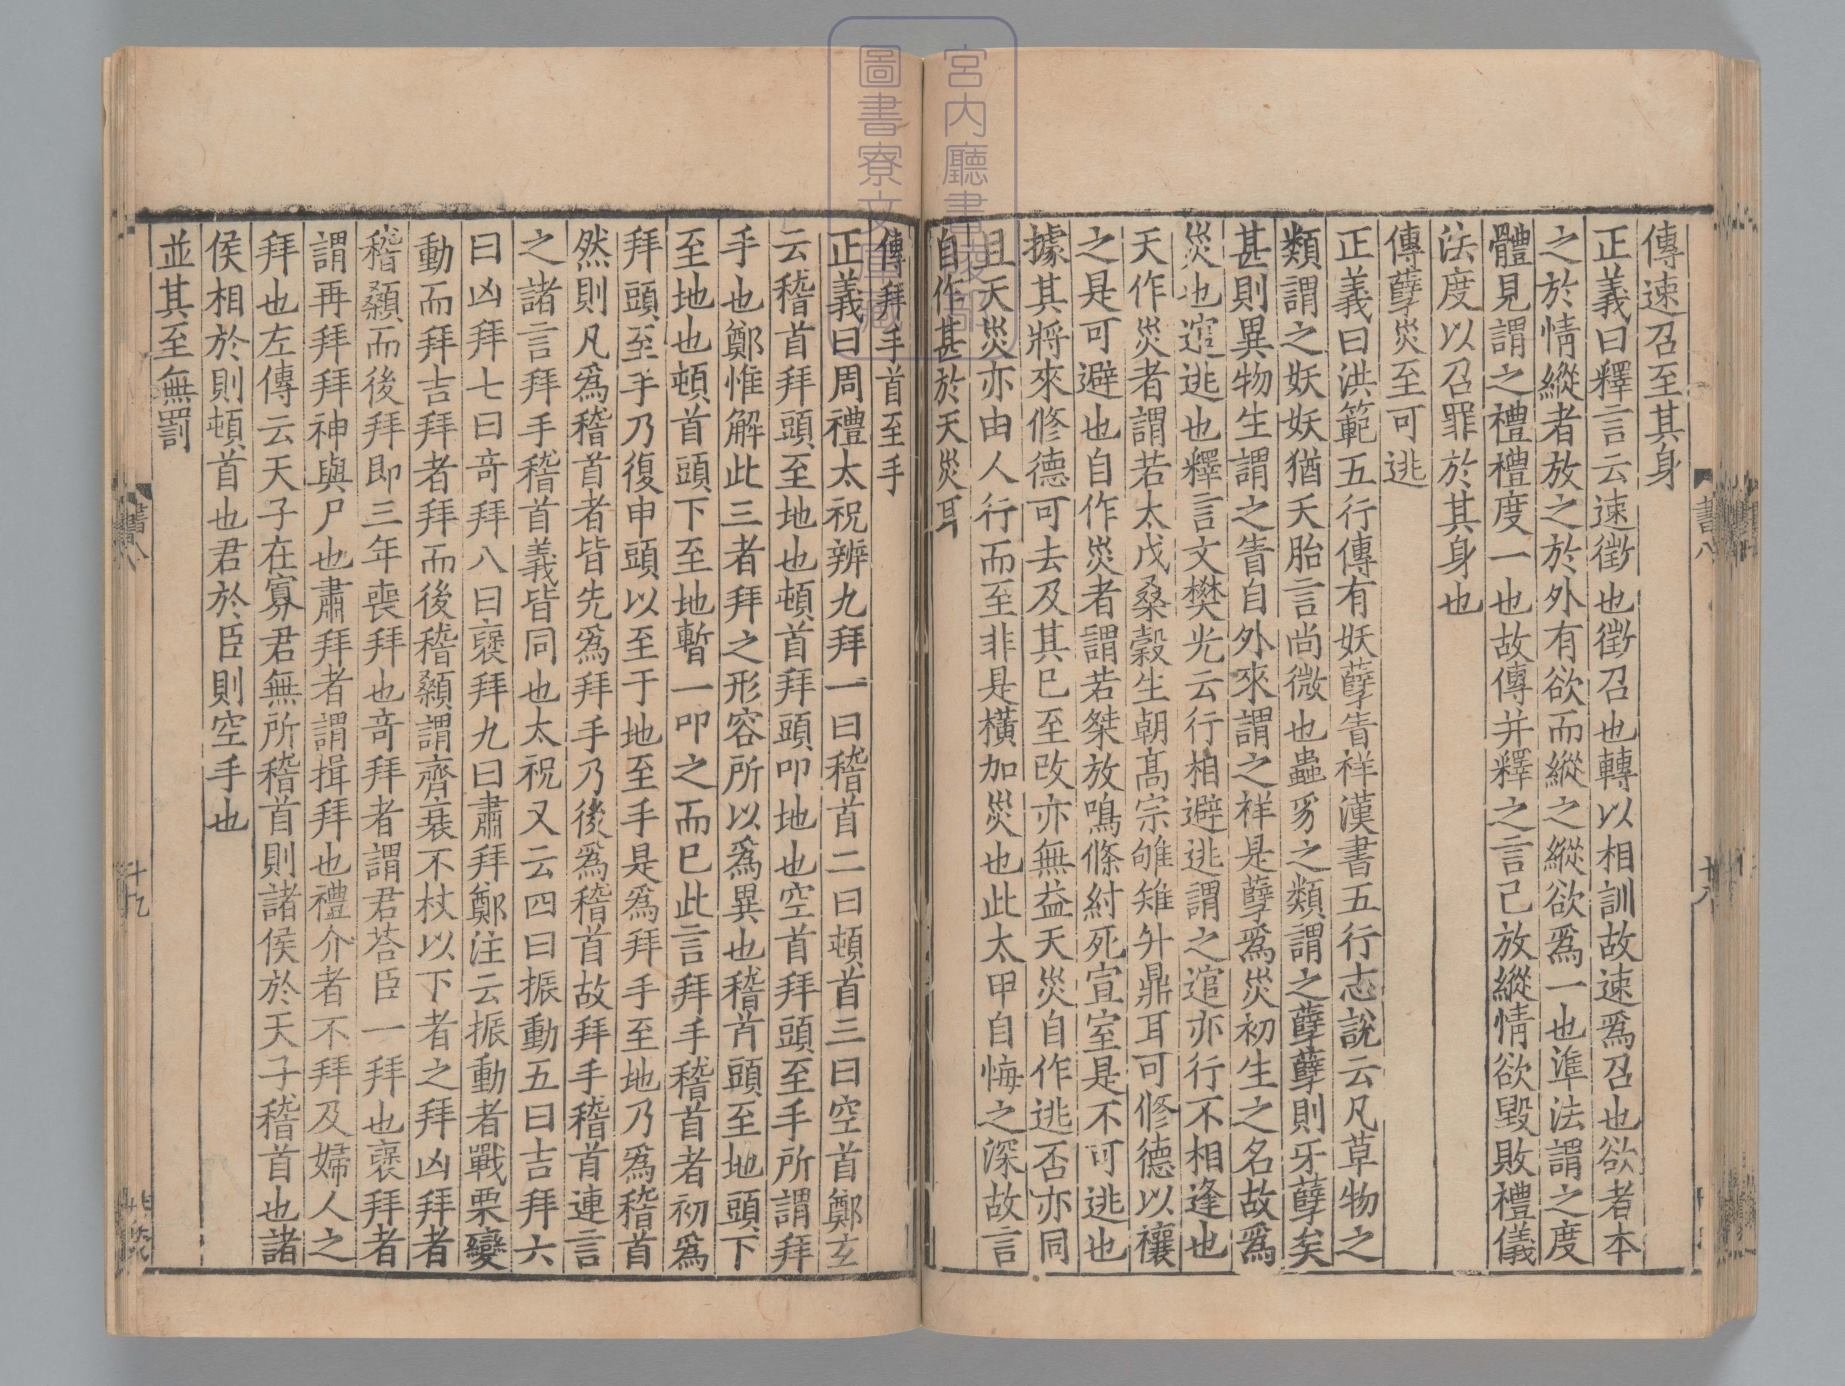 傳速召至其身
正義曰釋言云速徵也徵召也轉以相訓故速爲召也欲者本
之於情縱者放之於外有欲而縱之縱欲爲一也準法謂之度
體見謂之禮禮度一也故傳并釋之言己放縱情欲毀敗禮儀
法度以召罪於其身也
傳孽災至可逃
正義曰洪範五行傳有妖孽眚祥漢書五行志說云凡草物之
類謂之妖妖猶夭胎言尚微也蟲豸之類謂之孽孽則牙孽矣
甚則異物生謂之眚自外來謂之祥是孽爲災初生之名故爲
災也逭逃也釋言文樊光云行相避逃謂之逭亦行不相逢也
天作災者謂若太戊桑穀生朝高宗雊雉升鼎耳可修德以禳
之是可避也自作災者謂若桀放鳴條紂死宣室是不可逃也
據其將來修德可去及其已至改亦無益天災自作逃否亦同
且天災亦由人行而至非是橫加災也此太甲自悔之深故言
自作甚於天災耳
書八
十八
傳拜手首至手
正義曰周禮太祝辨九拜一曰稽首二曰頓首三曰空首鄭玄
云稽首拜頭至地也頓首拜頭叩地也空首拜頭至手所謂拜
手也鄭惟解此三者拜之形容所以爲異也稽首頭至地頭下
至地也頓首頭下至地暫一叩之而已此言拜手稽首者初爲
拜頭至手乃復申頭以至于地至手是爲拜手至地乃爲稽首
然則凡爲稽首者皆先爲拜手乃後爲稽首故拜手稽首連言
之諸言拜手稽首義皆同也太祝又云四曰振動五曰吉拜六
曰凶拜七曰奇拜八曰襃拜九曰肅拜鄭注云振動者戰栗變
動而拜吉拜者拜而後稽顙謂齊衰不杖以下者之拜凶拜者
稽顙而後拜即三年喪拜也奇拜者謂君荅臣一拜也襃拜者
謂再拜拜神與尸也肅拜者謂揖拜也禮介者不拜及婦人之
拜也左傳云天子在寡君無所稽首則諸侯於天子稽首也諸
侯相於則頓首也君於臣則空手也
並其至無罰
書八
十九
宮內廳書
圖書寮文